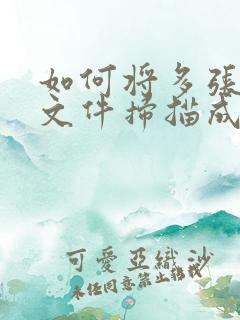 如何将多張
文件掃描成
可愛亞織沙
未经同意禁止搬我